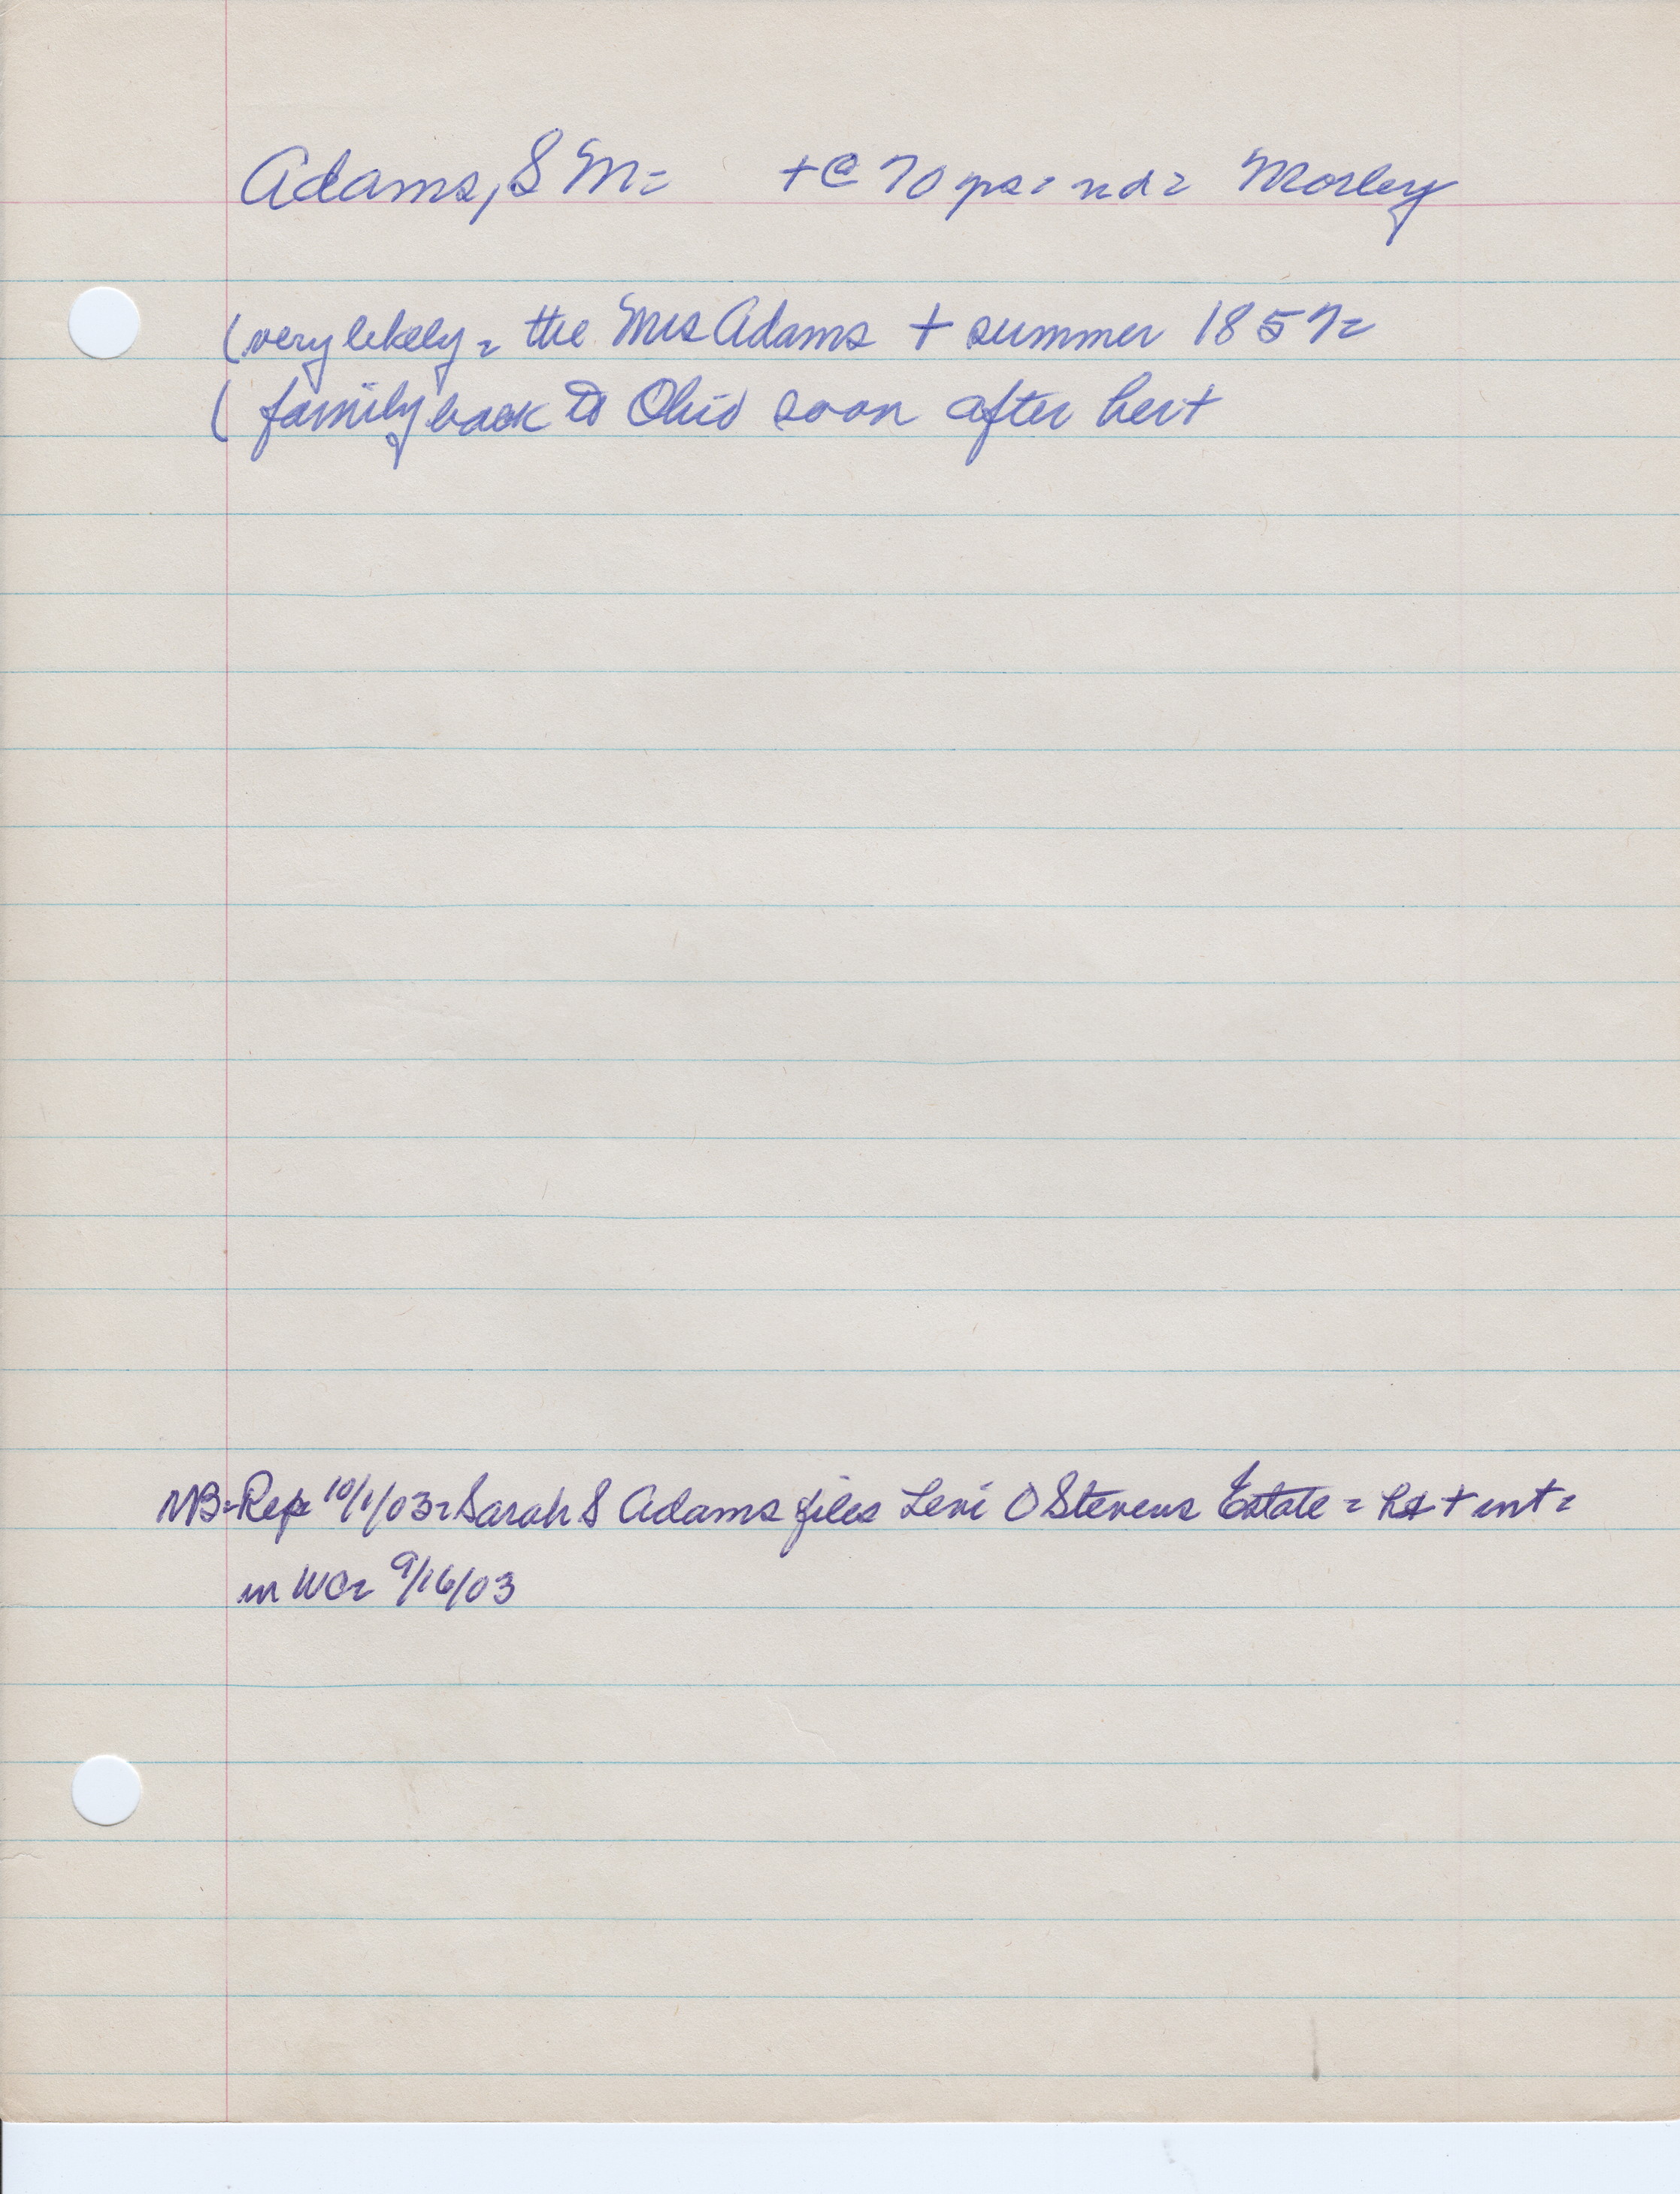 Adams, S M= +@ 70 yrs= nd= Morley
(very likely= the Mrs Adams + summer 1857=
( family back to Ohio soon after her +
NB=Rep 10/1/03=Sarah S Adams files Levi O Stevens Estate = + int=
in WC= 9/16/03